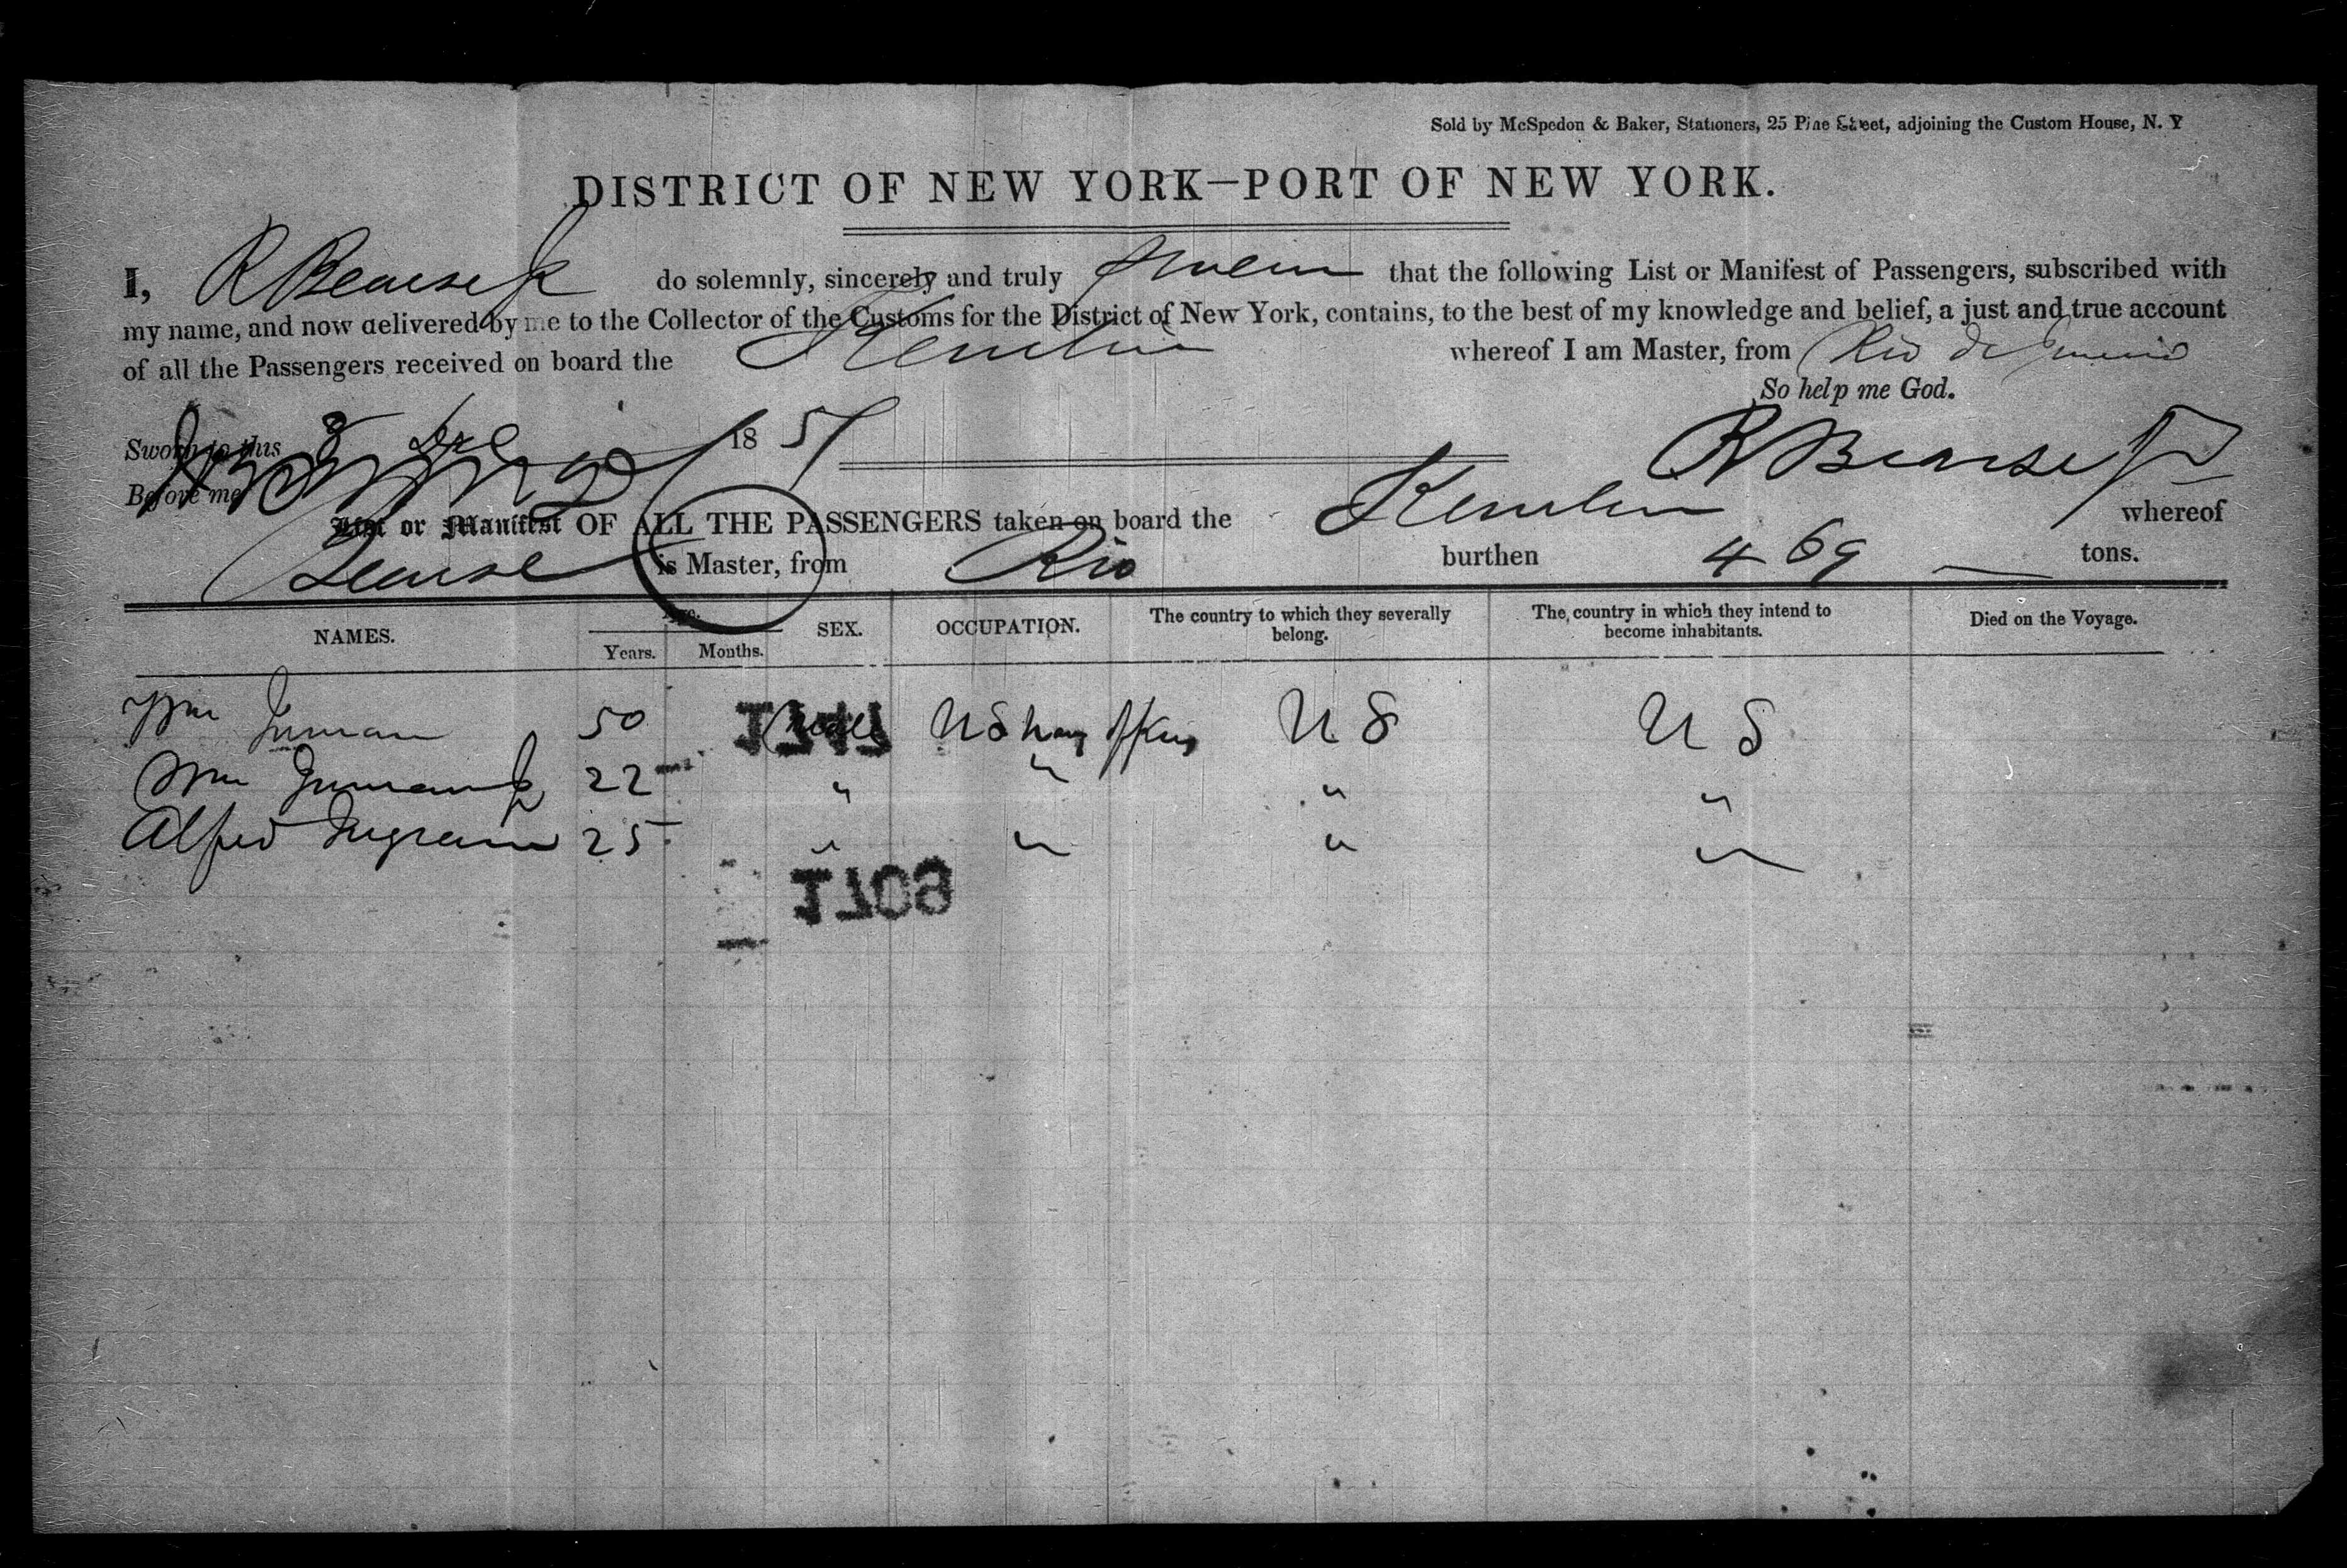 Sold by McSpedon & Baker, Stationers, 25 Pine Street, adjoining the Custom House, N. Y
DISTRICT OF NEW YORK—PORT OF NEW YORK.
I, R Bearse Jr do solemnly, sincerely and truly swear that the following List or Manifest of Passengers, subscribed with
my name, and now delivered by me to the Collector of the Customs for the District of New York, contains, to the best of my knowledge and belief, a just and true account
of all the Passengers received on board the whereof I am Master, from Rio de Janeiro
So help me God.
Sworn to this 8 Dec 1851
R Bearse Jr
Before me
List or Manifest OF ALL THE PASSENGERS taken on board the whereof
Bearse is Master, from Rio burthen 469 tons.
NAMES. Age. Years. Months. SEX. OCCUPATION. The country to which they severally belong. The country in which they intend to become inhabitants. Died on the Voyage.
Wm Inman 50 Male U S U S U S
Wm Inman Jr 22 " " " "
Alfred Ingram 25 " " " "
1709